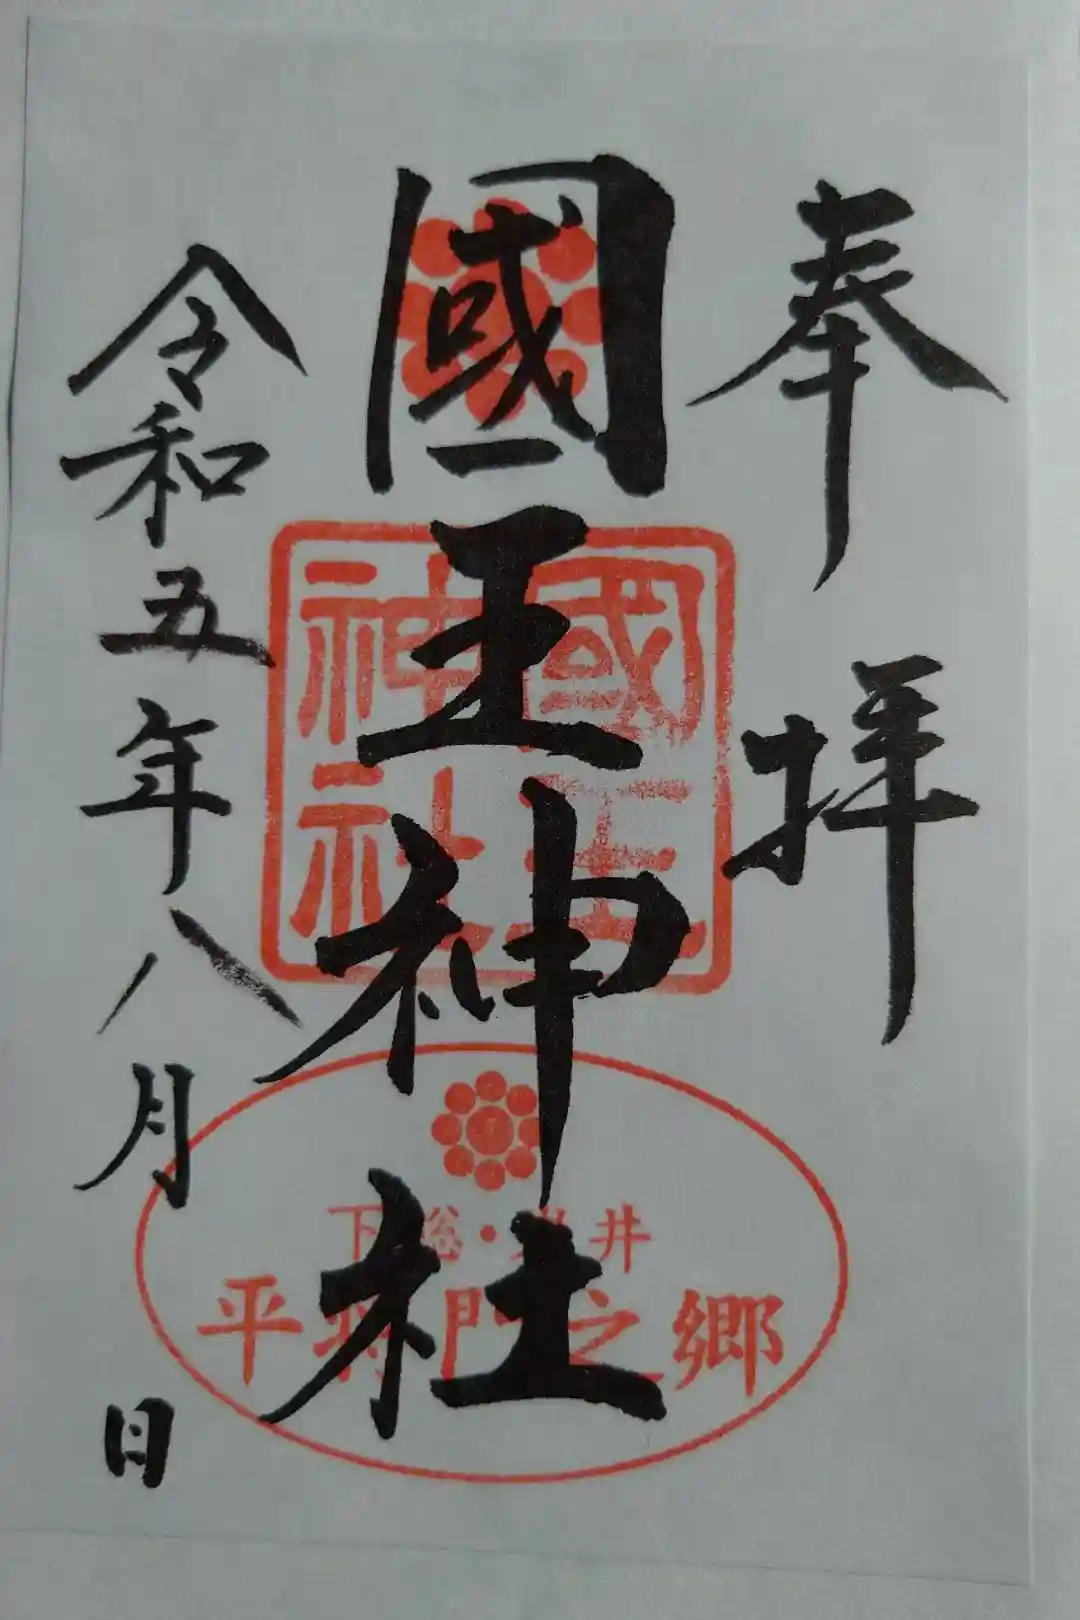 奉拝
國王神社
國王
神社
下総・岩井
平将門之郷
令和五年八月 日